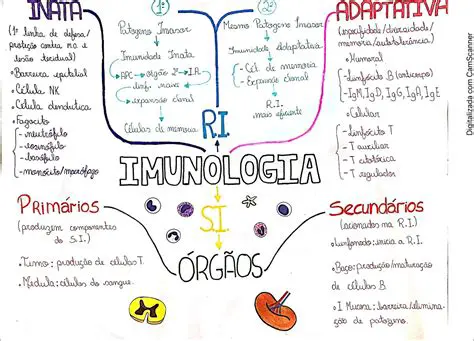 INATA
(1ª linha de defesa/
proteção contra m.o e
lesão tecidual)
• Barreira epitelial
• Célula NK
• Célula dendrítica
• Fagócito
- neutrófilo
- eosinófilo
- basófilo
- monócito/macrófago
1ª
Patógeno Invasor
Imunidade Inata
APC → órgão 2º → I.A.
linf. naive
expansão clonal
Células de memória
2ª
Mesmo Patógeno Invasor
Imunidade Adaptativa
- Cél. de memória
- Expansão clonal
R.I.
mais eficiente
ADAPTATIVA
(especificidade/diversidade/
memória/autotolerância)
• Humoral
- linfócito B (anticorpo)
- IgM, IgD, IgG, IgA, IgE
• Celular
- linfócito T
- T auxiliar
- T citotóxica
- T regulador
R.I.
IMUNOLOGIA
S.I.
ÓRGÃOS
Primários
(produzem componentes
do S.I.)
• Timo: produção de células T.
• Medula: células do sangue.
Secundários
(acionados na R.I.)
• Linfonodo: inicia a R.I.
• Baço: produção/maturação
de células B
• Mucosa: barreira/elimina-
ção de patógeno.
Digitalizada com CamScanner